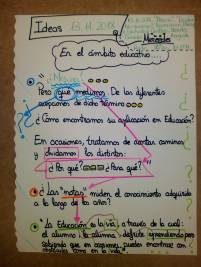 Ideas
13.11.2018
En el ámbito educativo...
¿Medir?
Pero ¿qué medimos? De las diferentes
acepciones de dicho término
¿Cómo encontramos su aplicación en Educación?
En ocasiones, tratamos de acortar caminos
y olvidamos los distintos:
¿Por qué? ¿Para qué?
¿Las "notas" miden el conocimiento adquirido
a lo largo de los años?
"La Educación es la vía, a través de la cual:
el alumno/la alumna, disfruta aprendiendo pero
sabiendo que en ocasiones, puedes encontrar con
obstáculos como en la vida".